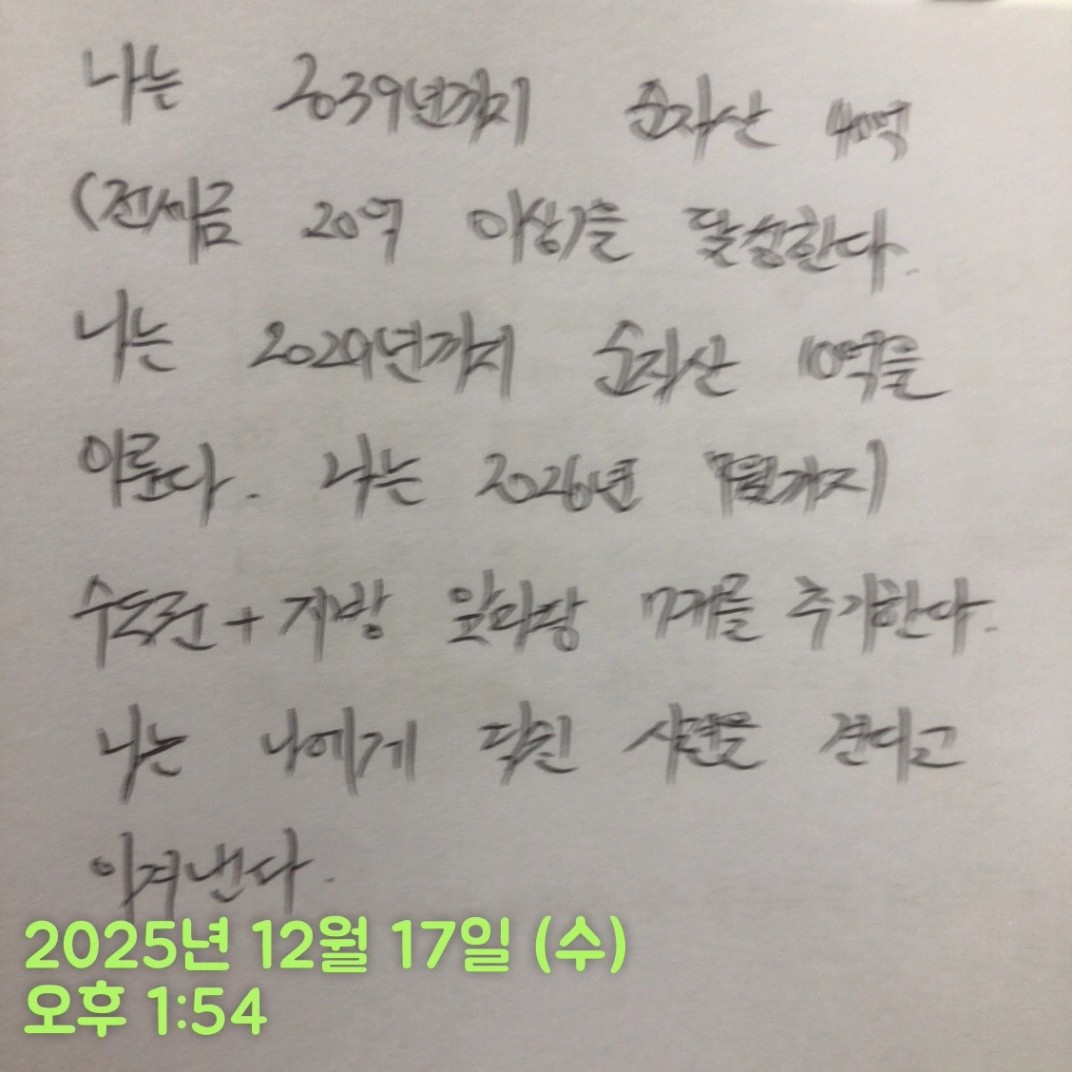 나는 2039년까지 순자산 40억
(전세금 20억 이상)을 달성한다.
나는 2029년까지 순자산 10억을
이룬다. 나는 2026년 7월까지
수도권+지방 앞마당 7개를 추가한다.
나는 나에게 닥친 시련을 견디고
이겨낸다.
2025년 12월 17일 (수)
오후 1:54